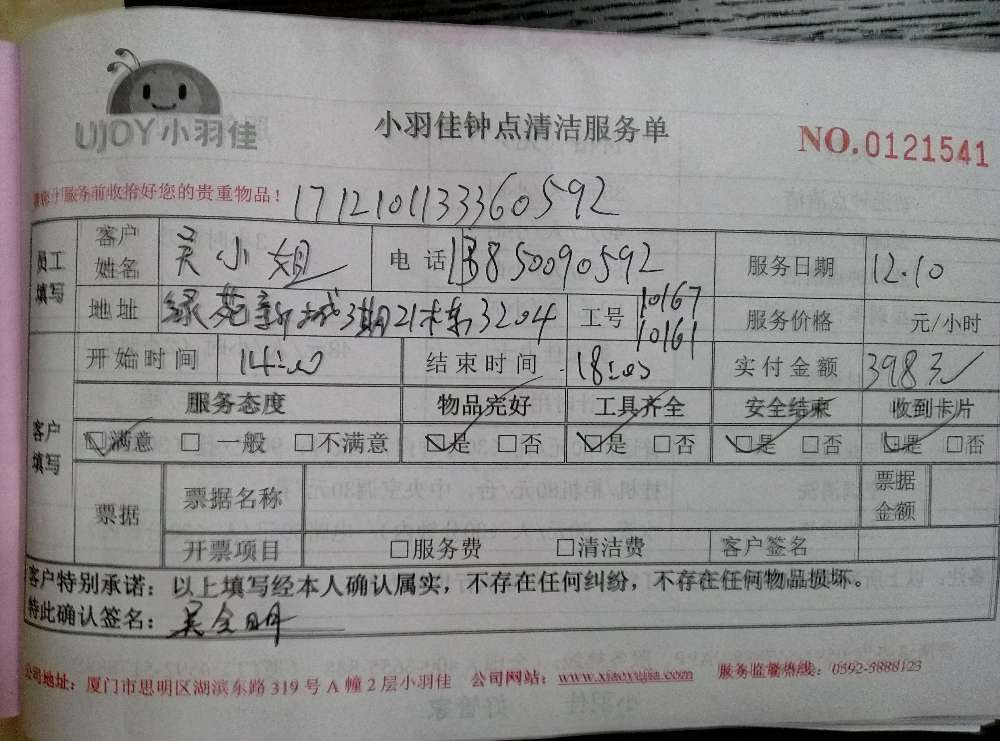 UJOY小羽佳
小羽佳钟点清洁服务单
NO.0121541
服务前收拾好您的贵重物品！
1712101133360592
员工填写 客户姓名 吴小姐 电话 13850090592 服务日期 12.10
地址 绿苑新城3期21栋3204 工号 10167 10161 服务价格 元/小时
开始时间 14:00 结束时间 18:00 实付金额 398元
客户填写 服务态度 物品完好 工具齐全 安全结束 收到卡片
☑满意 □一般 □不满意 ☑是 □否 ☑是 □否 ☑是 □否 ☑是 □否
票据 票据名称 票据金额
开票项目 □服务费 □清洁费 客户签名
客户特别承诺：以上填写经本人确认属实，不存在任何纠纷，不存在任何物品损坏。
特此确认签名：吴全明
公司地址：厦门市思明区湖滨东路319号A幢2层小羽佳 公司网站：www.xiaoyujia.com 服务监督热线：0592-3888123